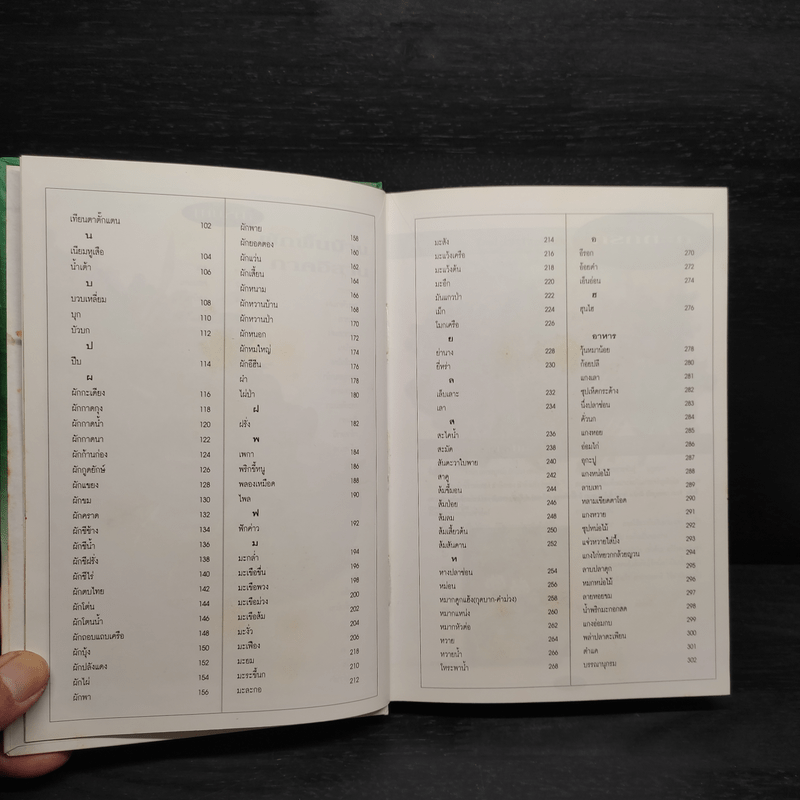 เทียนตาตั๊กแตน 102
น
เนียมหูเสือ 104
น้ำเต้า 106
บ
บวบเหลี่ยม 108
บุก 110
บัวบก 112
ป
ปีบ 114
ผ
ผักกะเดียง 116
ผักกาดกุง 118
ผักกาดน้ำ 120
ผักกาดนา 122
ผักก้านก่อง 124
ผักกูดยักษ์ 126
ผักแขยง 128
ผักขม 130
ผักคราด 132
ผักชีช้าง 134
ผักชีน้ำ 136
ผักชีฝรั่ง 138
ผักชีไร่ 140
ผักตบไทย 142
ผักโต่น 144
ผักโตนน้ำ 146
ผักถอบแถบเครือ 148
ผักบุ้ง 150
ผักปลังแดง 152
ผักไผ่ 154
ผักพา 156
ผักพาย 158
ผักยอดตอง 160
ผักแว่น 162
ผักเสี้ยน 164
ผักหนาม 166
ผักหวานบ้าน 168
ผักหวานป่า 170
ผักหนอก 172
ผักหมใหญ่ 174
ผักอีฮีน 176
ผำ 178
ไผ่ป่า 180
ฝ
ฝรั่ง 182
พ
เพกา 184
พริกขี้หนู 186
พลองเหมือด 188
ไพล 190
ฟ
ฟักข้าว 192
ม
มะกล่ำ 194
มะเขือขื่น 196
มะเขือพวง 198
มะเขือม่วง 200
มะเขือส้ม 202
มะงั่ว 204
มะเฟือง 206
มะยม 218
มะระขี้นก 210
มะละกอ 212
มะสัง 214
มะแว้งเครือ 216
มะแว้งต้น 218
มะอึก 220
มันแกวป่า 222
เม็ก 224
โมกเครือ 226
ย
ย่านาง 228
ยี่หร่า 230
ล
เล็บเลาะ 232
เลา 234
ส
สะไดน้ำ 236
สะมัด 238
สันตะวาใบพาย 240
สาคู 242
ส้มขี้มอน 244
ส้มป่อย 246
ส้มลม 248
ส้มเสี้ยวต้น 250
ส้มสันดาน 252
ห
หางปลาช่อน 254
หม่อน 256
หมากดูกแฮ้ง(กุดบาก-คำม่วง) 258
หมากแหน่ง 260
หมากหัวต่อ 262
หวาย 264
หวายน้ำ 266
โหระพาน้ำ 268
อ
อีรอก 270
อ้อยดำ 272
เอ็นอ่อน 274
ฮ
ฮุนไฮ 276
อาหาร
วุ้นหมาน้อย 278
ก้อยปลี 280
แกงเลา 281
ซุปเห็ดกระด้าง 282
นึ่งปลาช่อน 283
คั่วนก 284
แกงหอย 285
อ่อมไก่ 286
อุกะปู 287
แกงหน่อไม้ 288
ลาบเทา 289
หลามเขียดตาโอด 290
แกงหวาย 291
ซุปหน่อไม้ 292
แจ่วหวายใต้บึ้ง 293
แกงไก่หยวกกล้วยญวน 294
ลาบปลาดุก 295
หมกหน่อไม้ 296
ลายหอยขม 297
น้ำพริกมะกอกสด 298
แกงอ่อมกบ 299
พล่าปลาตะเพียน 300
คำแค 301
บรรณานุกรม 302